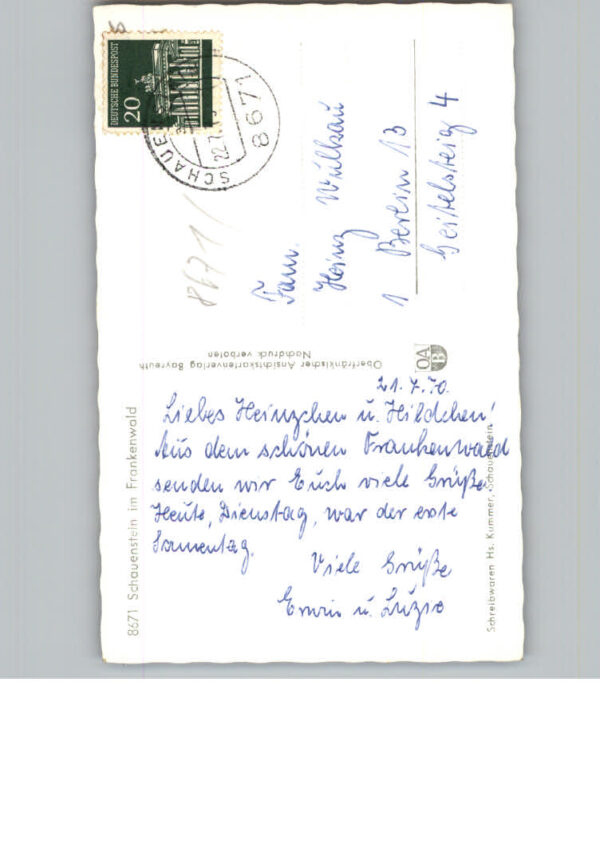 DEUTSCHE BUNDESPOST
20
22.7.
8671
8671
Fam.
Heinz Wulkau
1 Berlin 13
Geitelsteig 4
Oberfränkischer Ansichtskartenverlag Bayreuth
Nachdruck verboten
OA
B
8671 Schauenstein im Frankenwald
21.7.70.
Liebes Heinzchen u. Hildchen!
Aus dem schönen Frankenwald
senden wir Euch viele Grüße.
Heute, Dienstag, war der erste
Sonnentag.
Viele Grüße
Erwin u.
Schreibwaren Hs. Kummer, Schauenstein